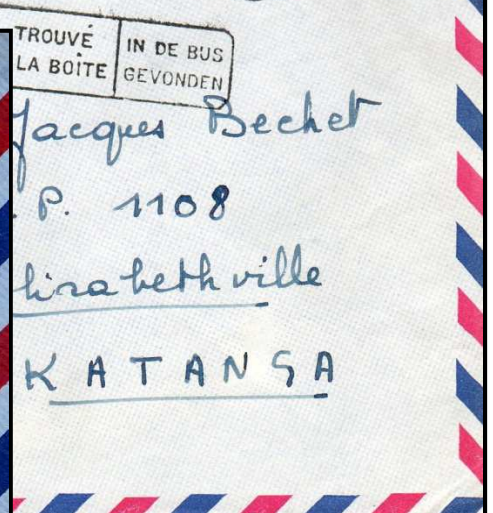 TROUVÉ
LA BOÎTE
IN DE BUS
GEVONDEN
Jacques Bechet
. P. 1108
lisabethville
KATANGA